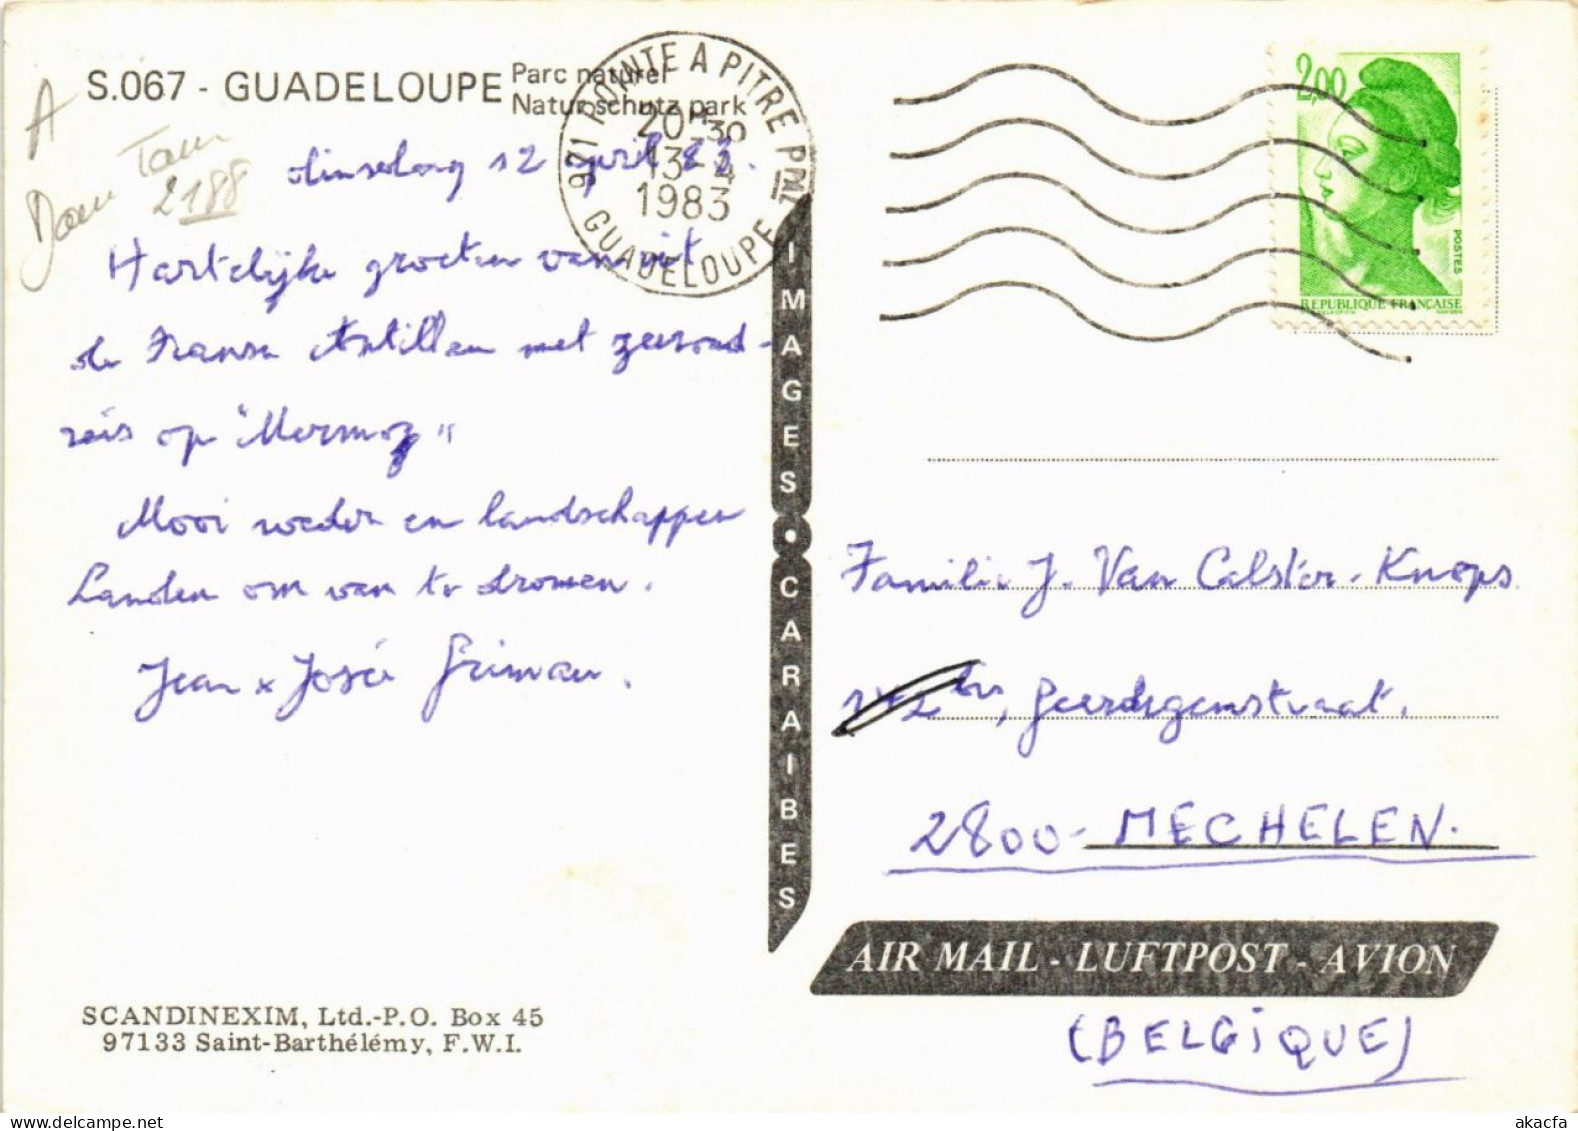 S.067 - GUADELOUPE Parc naturel
Naturschutz park
A
Tam
2188
dinsdag 12 april 83.
971 POINTE A PITRE PPAL
20H30
13-4
1983
GUADELOUPE
2,00
POSTES
REPUBLIQUE FRANÇAISE
Hartelijke groeten vanuit
de Franse Antillen met zeerond-
reis op "Mermoz"
Mooi weder en landschappen
Landen om van te dromen.
Jean x José
IMAGES • CARAIBES
Familie J. Van Calster-Knops
Geerdegemstraat.
2800 - MECHELEN.
AIR MAIL - LUFTPOST - AVION
(BELGIQUE)
SCANDINEXIM, Ltd.-P.O. Box 45
97133 Saint-Barthélémy, F.W.I.
akacfa